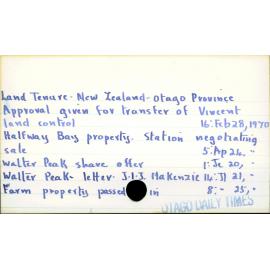 Land Tenure - New Zealand - Otago Province
Approval given for transfer of Vincent
land control 16: Feb 28, 1970
Halfway Bay property. Station negotiating
sale 5: Ap 24, "
Walter Peak share offer 1: Je 20, "
Walter Peak - letter. J.I.J. MacKenzie 14: Jl 21, "
Farm property passed in 8: - 25, "
OTAGO DAILY TIMES